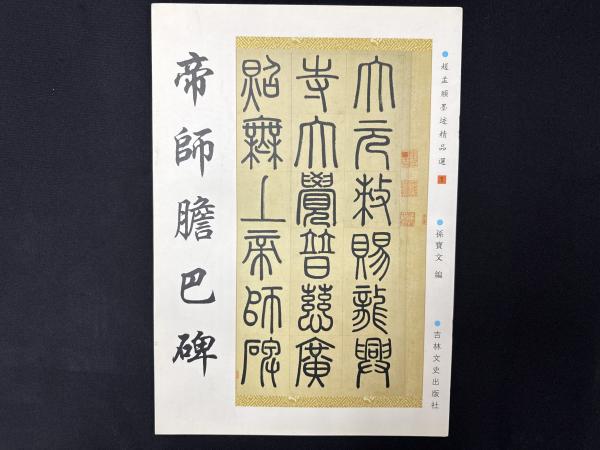 趙孟頫墨迹精品選
孫寶文 編
吉林文史出版社
大元敕賜龍興
寺大覺普慈廣
照無上帝師碑
帝師膽巴碑